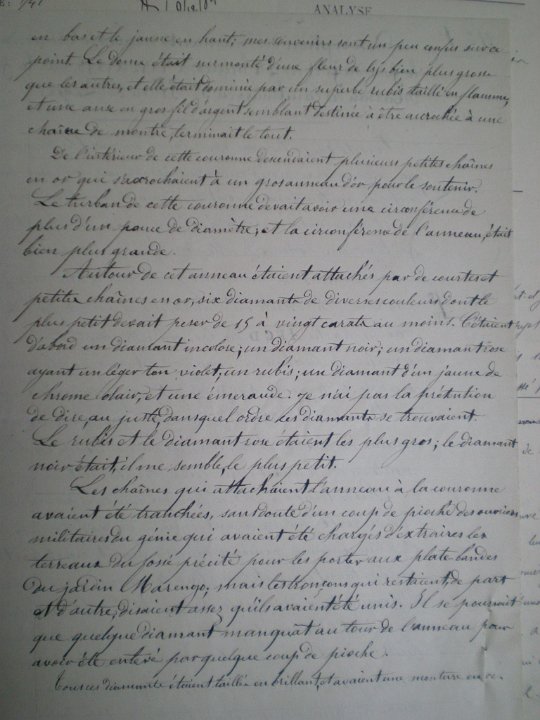 ANALYSE
en bas et le jaune en haut; mes souvenirs sont un peu confus sur ce
point. Le dôme était surmonté d'une fleur de lys bien plus grosse
que les autres, et elle était dominée par un superbe rubis taillé en flamme,
et une anse en gros fil d'argent semblant destinée à être accrochée à une
chaîne de montre, terminait le tout.
De l'intérieur de cette couronne descendaient plusieurs petites chaînes
en or qui s'accrochaient à un gros anneau d'or pour le soutenir.
Le turban de cette couronne devait avoir une circonférence de
plus d'un pouce de diamètre; et la circonférence de l'anneau, était
bien plus grande.
Autour de cet anneau étaient attachés par de courtes et
petites chaînes en or, six diamants de diverses couleurs dont le
plus petit devait peser de 15 à vingt carats au moins. C'étaient
d'abord un diamant incolore; un diamant noir; un diamant rose
ayant un léger ton violet; un rubis; un diamant d'un jaune de
chrome clair, et une émeraude. Je n'ai pas la prétention
de dire, au juste, dans quel ordre ces diamants se trouvaient.
Le rubis et le diamant rose étaient les plus gros; le diamant
noir était, il me semble, le plus petit.
Les chaînes qui attachaient l'anneau à la couronne
avaient été tranchées, sans doute d'un coup de pioche des ouvriers
militaires du génie qui avaient été chargés d'extraire les
terreaux du fossé précité pour les porter aux plates bandes
du jardin Marengo, mais les tronçons qui restaient, de part
et d'autre, disaient assez qu'ils avaient été unis. Il se pourrait
que quelque diamant manquât autour de l'anneau pour
avoir été enlevé par quelque coup de pioche.
Tous ces diamants étaient taillés en brillant, et avaient une monture en or